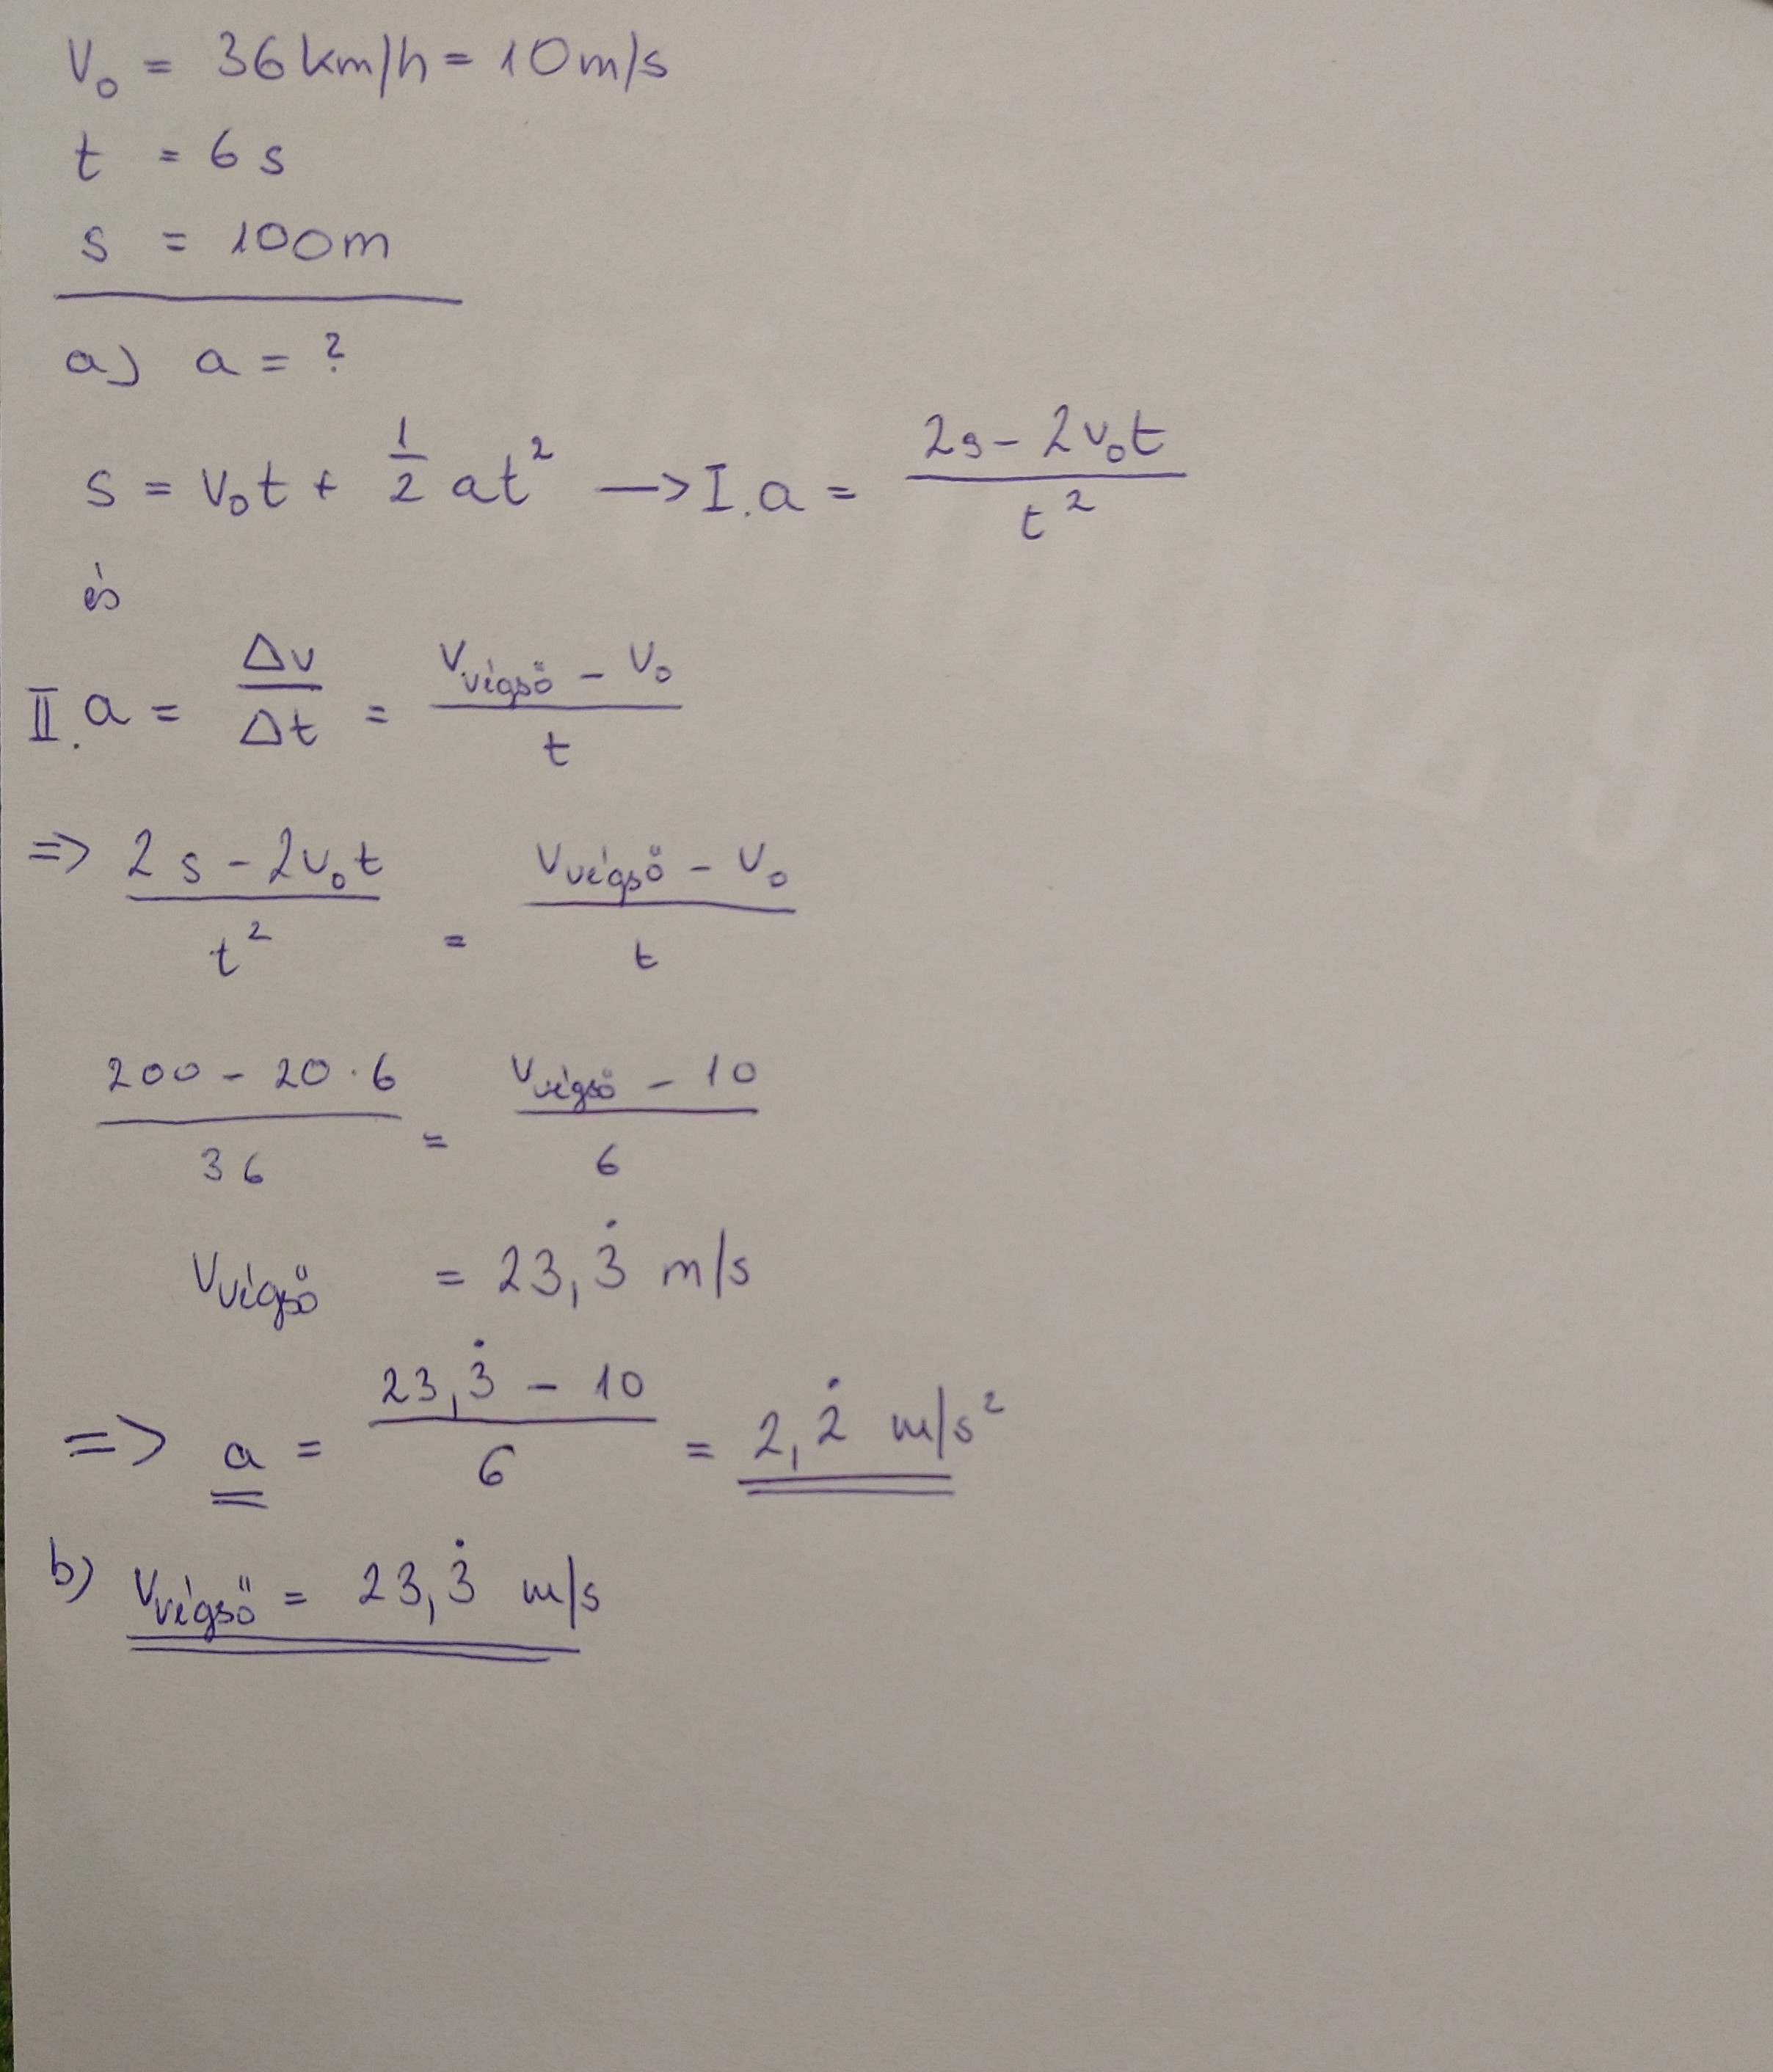 v₀ = 36 km/h = 10 m/s
t = 6 s
s = 100m
a) a = ?
s = v₀t + 1/2 at² → I. a = (2s - 2v₀t)/t²
és
II. a = Δv/Δt = (v_végső - v₀)/t
=> (2s - 2v₀t)/t² = (v_végső - v₀)/t
(200 - 20·6)/36 = (v_végső - 10)/6
v_végső = 23,3̇ m/s
=> a = (23,3̇ - 10)/6 = 2,2̇ m/s²
b) v_végső = 23,3̇ m/s